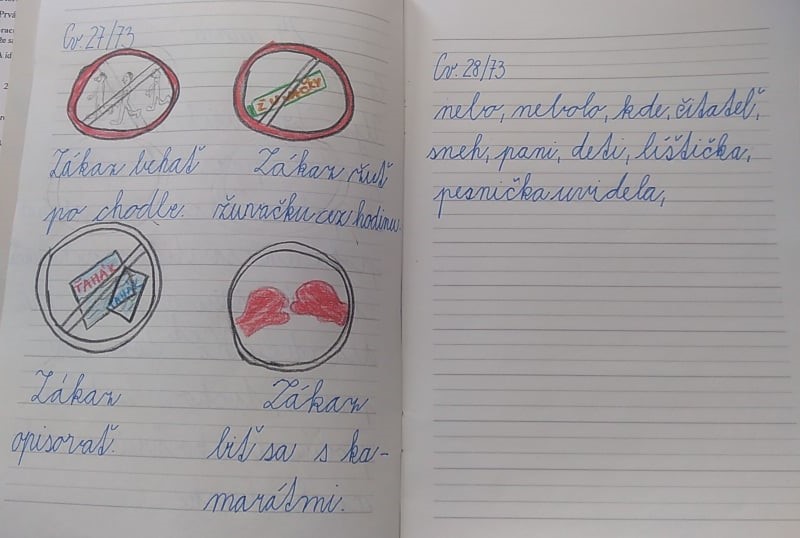 Cv. 27/73
ŽUVAČKY
Zákaz behať
po chodbe.
Zákaz žuť
žuvačku cez hodinu.
ŤAHÁK
ŤAHÁK
Zákaz
opisovať.
Zákaz
biť sa s ka-
marátmi.
Cv. 28/73
nebo, nebolo, kde, čitateľ,
sneh, pani, deti, líštička,
pesnička uvidela,